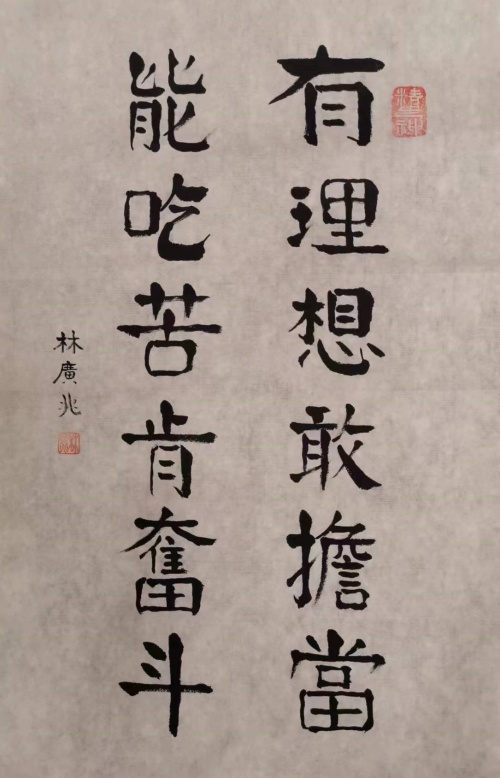 有理想敢擔當
能吃苦肯奮斗
林廣兆